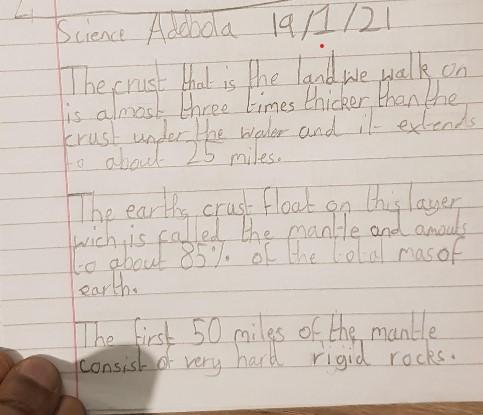 Science Adebola 19/1/21
The crust that is the land we walk on
is almost three times thicker than the
crust under the water and it extends
to about 25 miles.
The earths crust float on this layer
wich is called the mantle and amouts
to about 85% of the total mas of
earth.
The first 50 miles of the mantle
consist of very hard rigid rocks.